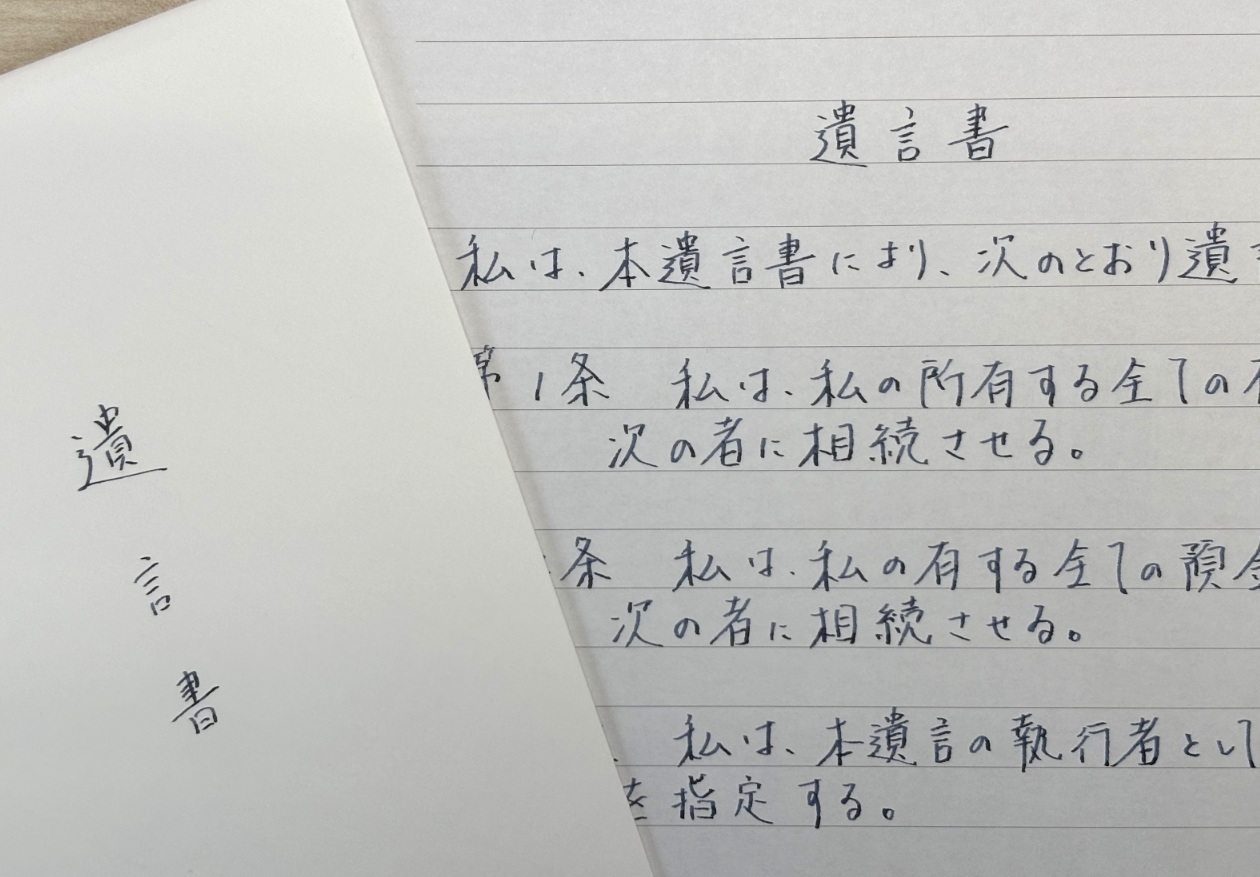 遺言書
遺言書
私は、本遺言書により、次のとおり遺
第1条　私は、私の所有する全ての
次の者に相続させる。
条　私は、私の有する全ての預金
次の者に相続させる。
私は、本遺言の執行者として
を指定する。